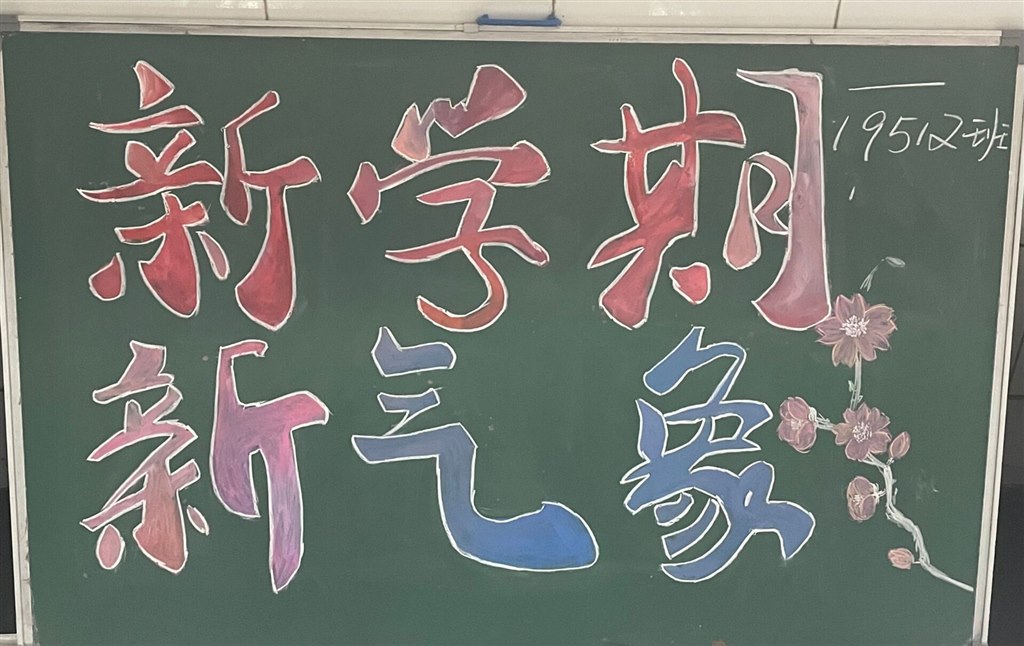 新学期
新气象
——19512班